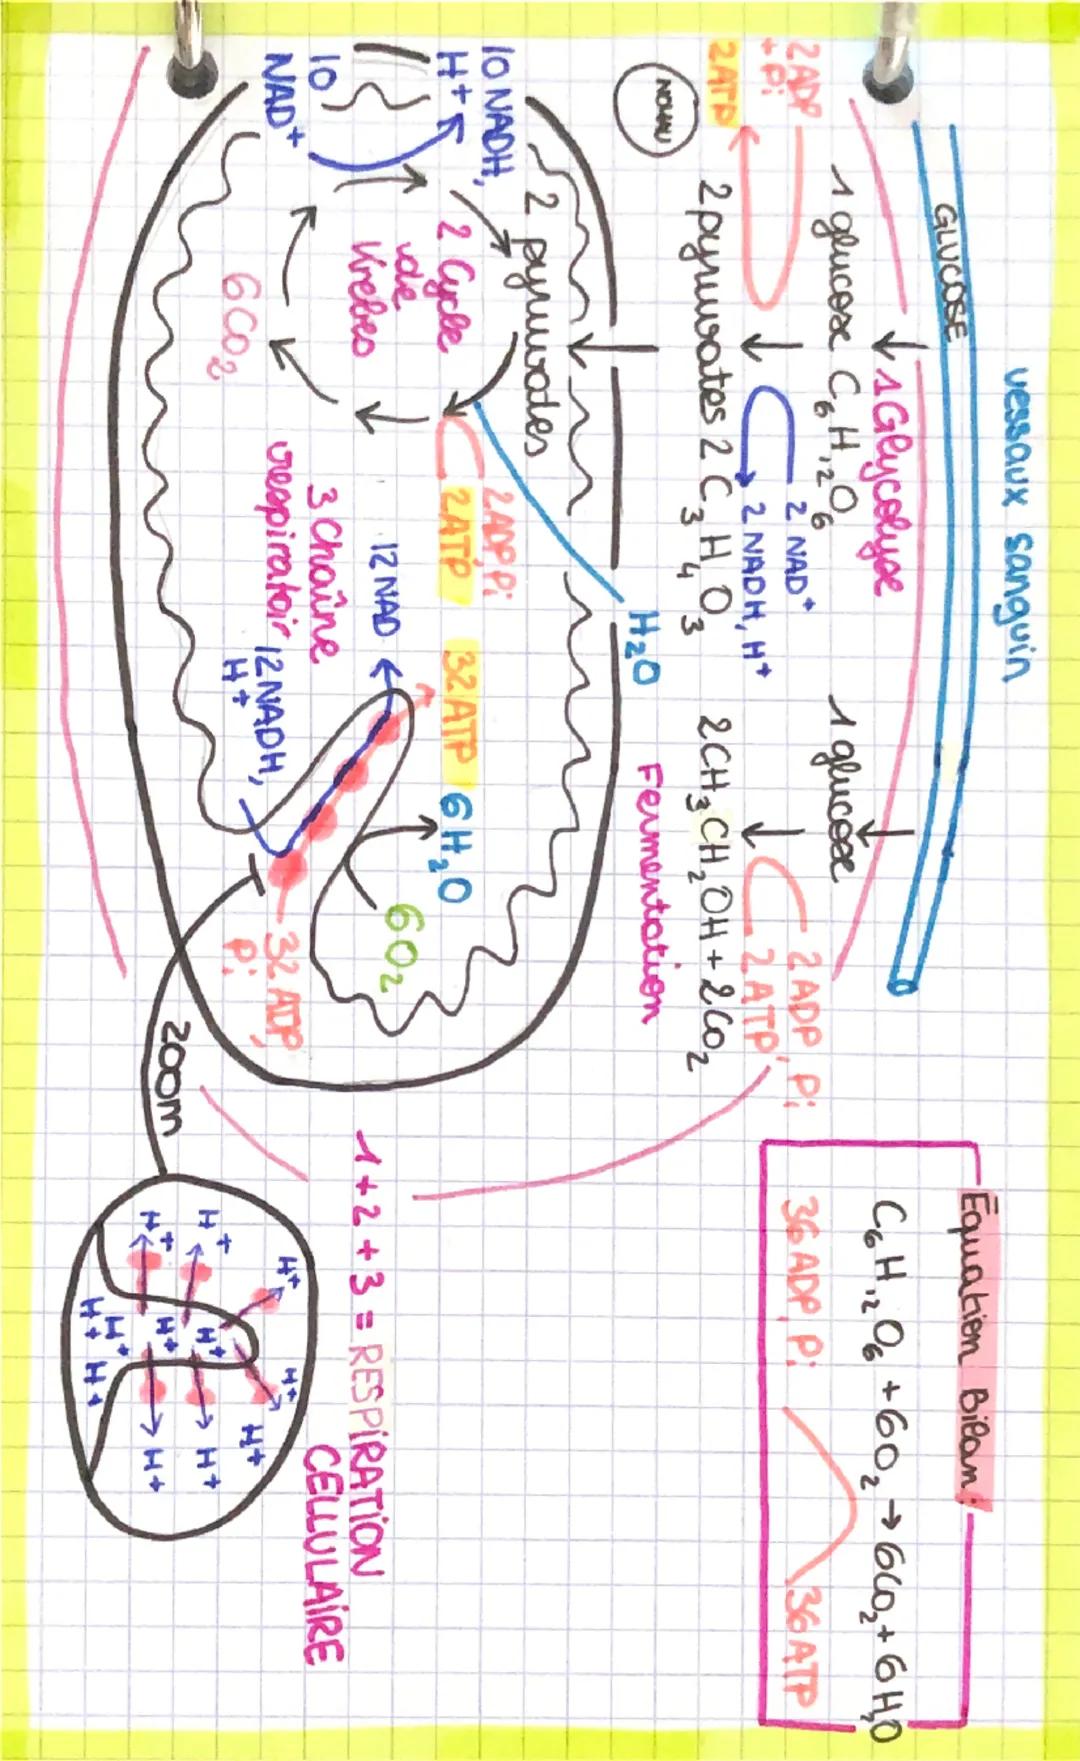 vessaux sanguin
GLUCOSE
1 Glycolyse
1 glucose C6H12O6
2ADP
+ Pi
2ATP
2 NAD+
2 NADH, H+
2 pyruvates 2 C3H4O3
NOYAU
1 glucose
2ADP, Pi
2ATP
2CH3CH2OH + 2CO2
Fermentation
H2O
2 pyruvates
10 NADH,
H+
10
NAD+
2 Cycle
de
Krebs
6CO2
2ADP Pi
2ATP
32ATP
6H2O
6O2
12 NAD
3 Chaîne
respiratoir
12NADH,
H+
32 ADP,
Pi
zoom
H+
H+
H+
H+
H+
H+
H+
H+
H+
H+
H+
H+
1 + 2 + 3 = RESPIRATION
CELLULAIRE
Équation Bilan:
C6H12O6 + 6O2 → 6CO2 + 6H2O
36ADP, Pi
36ATP